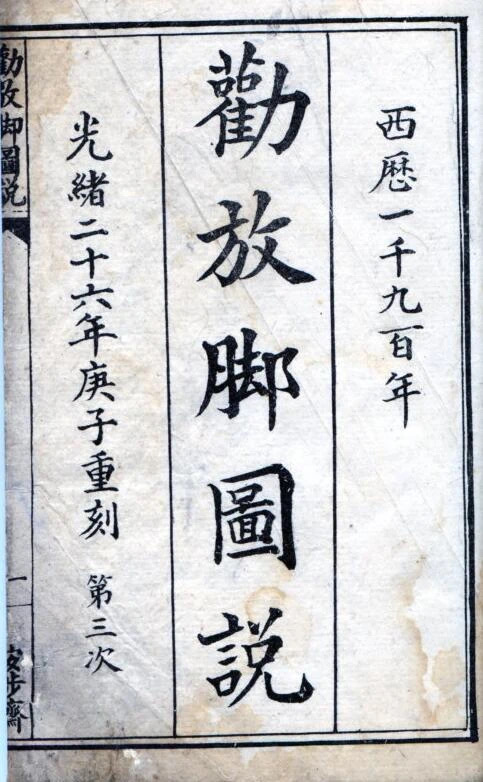 西歷一千九百年
勸放脚圖説
光緒二十六年庚子重刻 第三次
勸放脚圖説
一
步齋